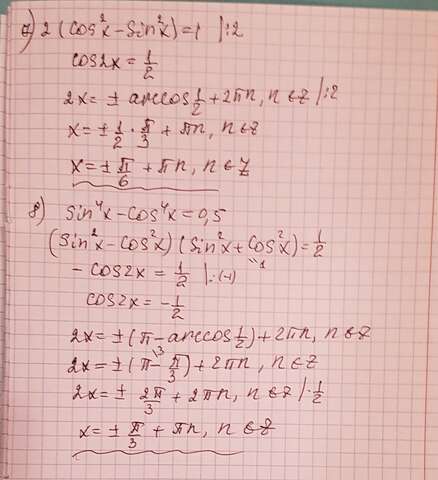 7) 2(cos²x - sin²x) = 1 |:2
cos2x = 1/2
2x = ± arccos 1/2 + 2πn, n ∈ Z |:2
x = ± 1/2 · π/3 + πn, n ∈ Z
x = ± π/6 + πn, n ∈ Z
8) sin⁴x - cos⁴x = 0,5
(sin²x - cos²x)(sin²x + cos²x) = 1/2
"1
- cos2x = 1/2 |:(-1)
cos2x = - 1/2
2x = ±(π - arccos 1/2) + 2πn, n ∈ Z
2x = ±(π\3 - π/3) + 2πn, n ∈ Z
2x = ± 2π/3 + 2πn, n ∈ Z |· 1/2
x = ± π/3 + πn, n ∈ Z